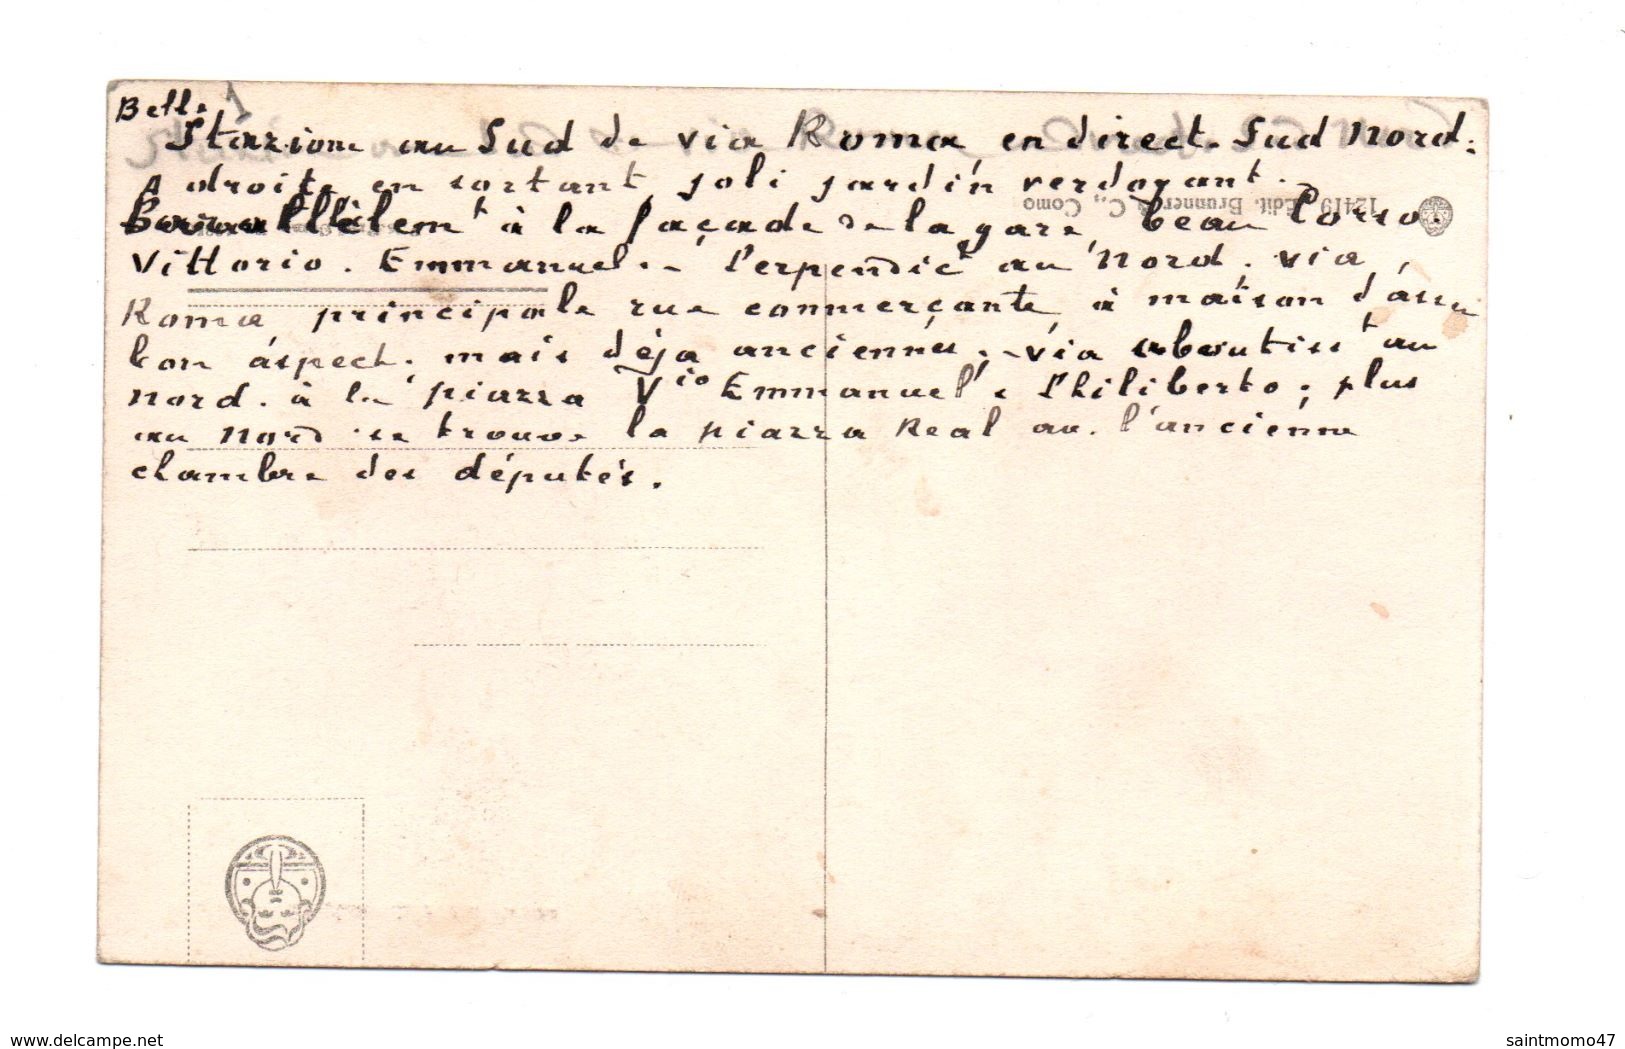 Belle
Stazione au Sud de via Roma, en direct. Sud Nord.
A droite en sortant joli jardin verdoyant.
12419 Edit. Brunner & C., Como
Parallèlemt à la façade de la gare, beau Corso
Vittorio. Emmanuele - Perpendict au Nord. via
Roma, principale rue commerçante à maison d'assez
bon aspect. mais déjà anciennes, - via aboutisst au
nord. à la piazza Vio Emmanuele Philiberto; plus
au nord se trouve la piazza Real av. l'ancienne
chambre des députés.
www.delcampe.net
saintmomo47